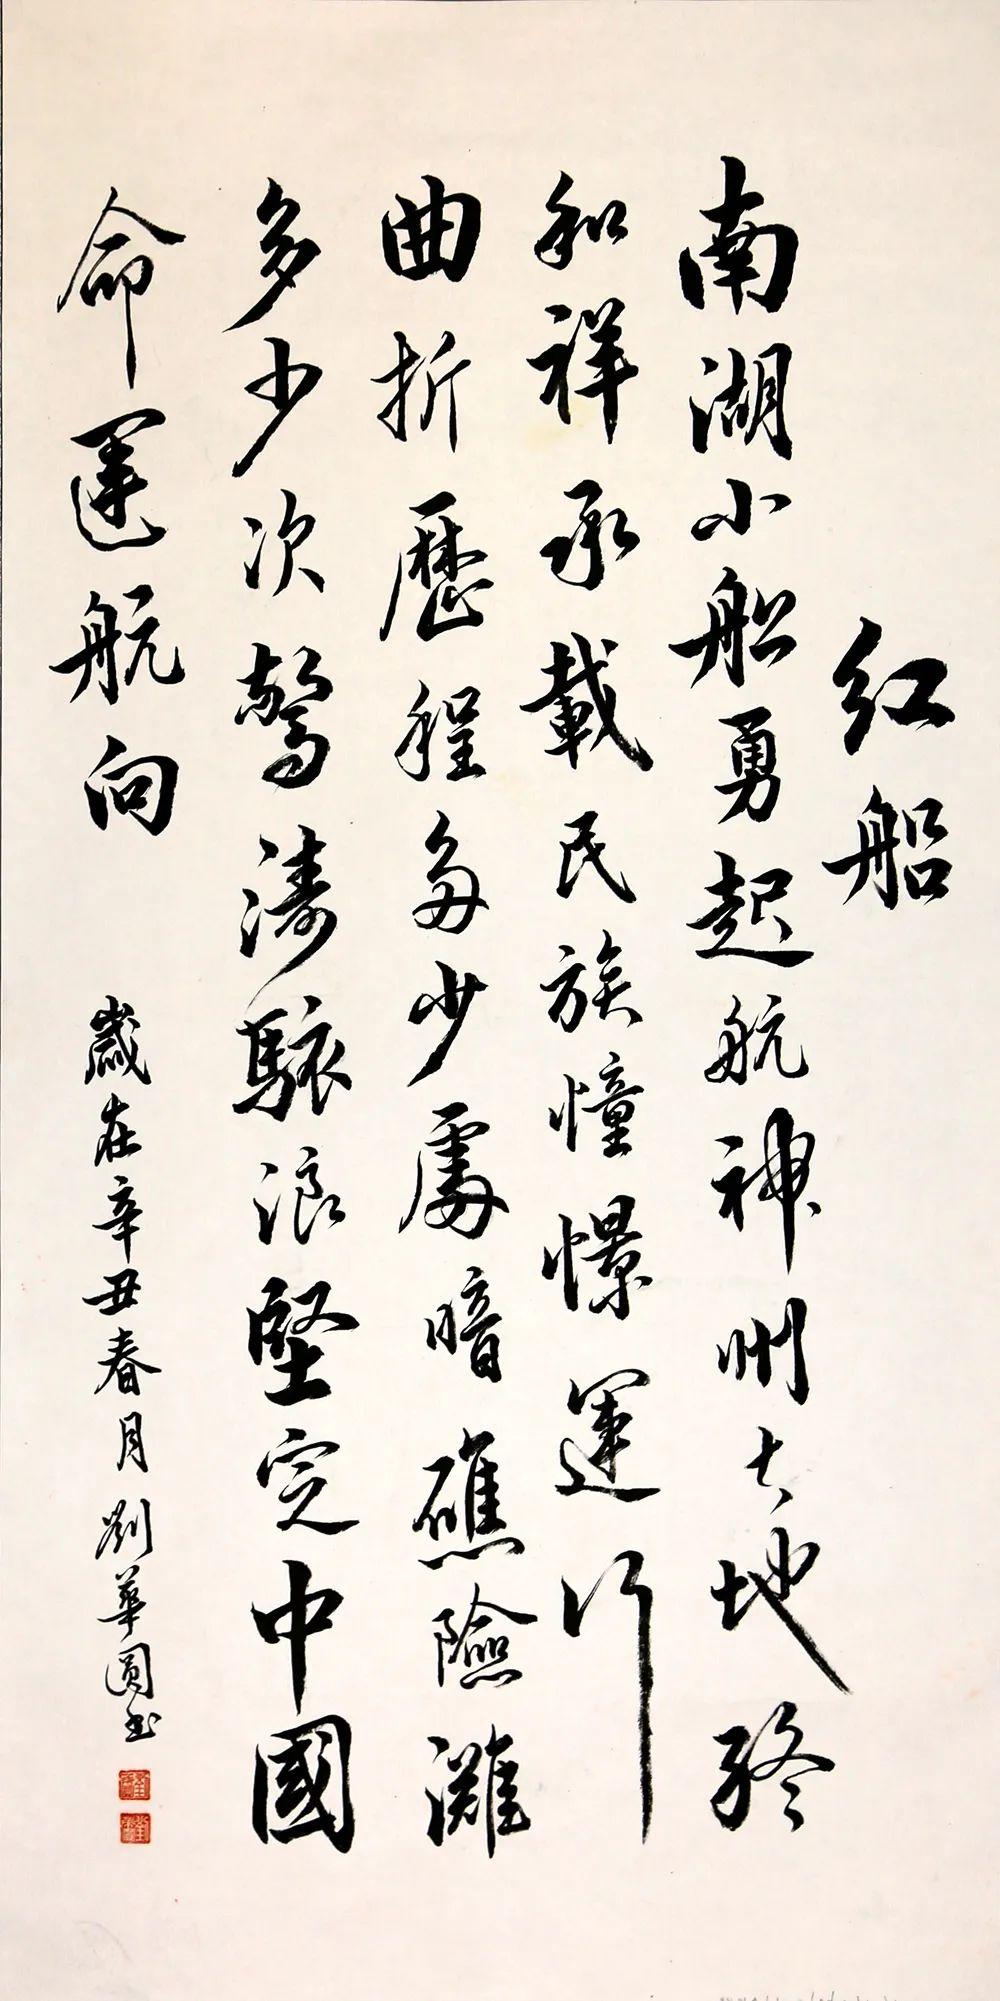 红船
南湖小船勇起航神州大地終
和祥承載民族憧憬運行
曲折歷程多少處暗礁險灘
多少次驚濤駭浪堅定中國
命運航向
歲在辛丑春月劉華圓书